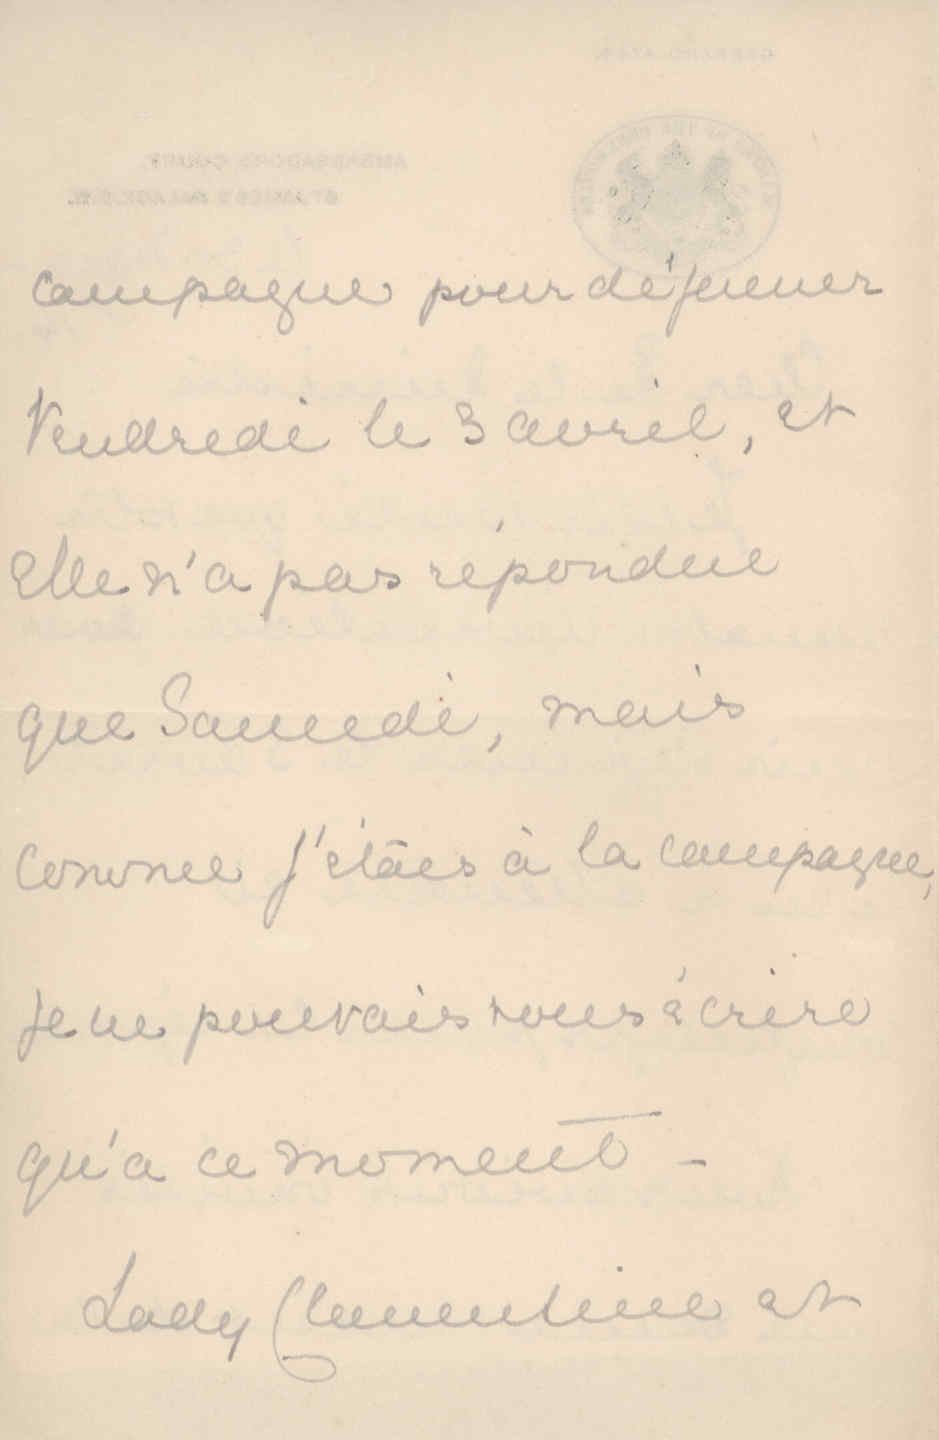 campagne pour déjeuner
Vendredi le 3 avril, et
Elle n'a pas répondue
que Samedi, mais
comme j'étâes à la campagne,
je ne pouvais vous écrire
qu'a ce moment -
Lady Clementine et